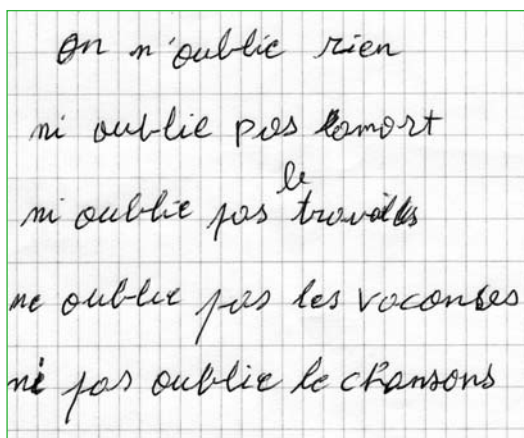 On n'oublie rien
ni oublie pas lamort
ni oublie pas le travaills
ne oublie pas les vaconses
ni pas oublie le chansons